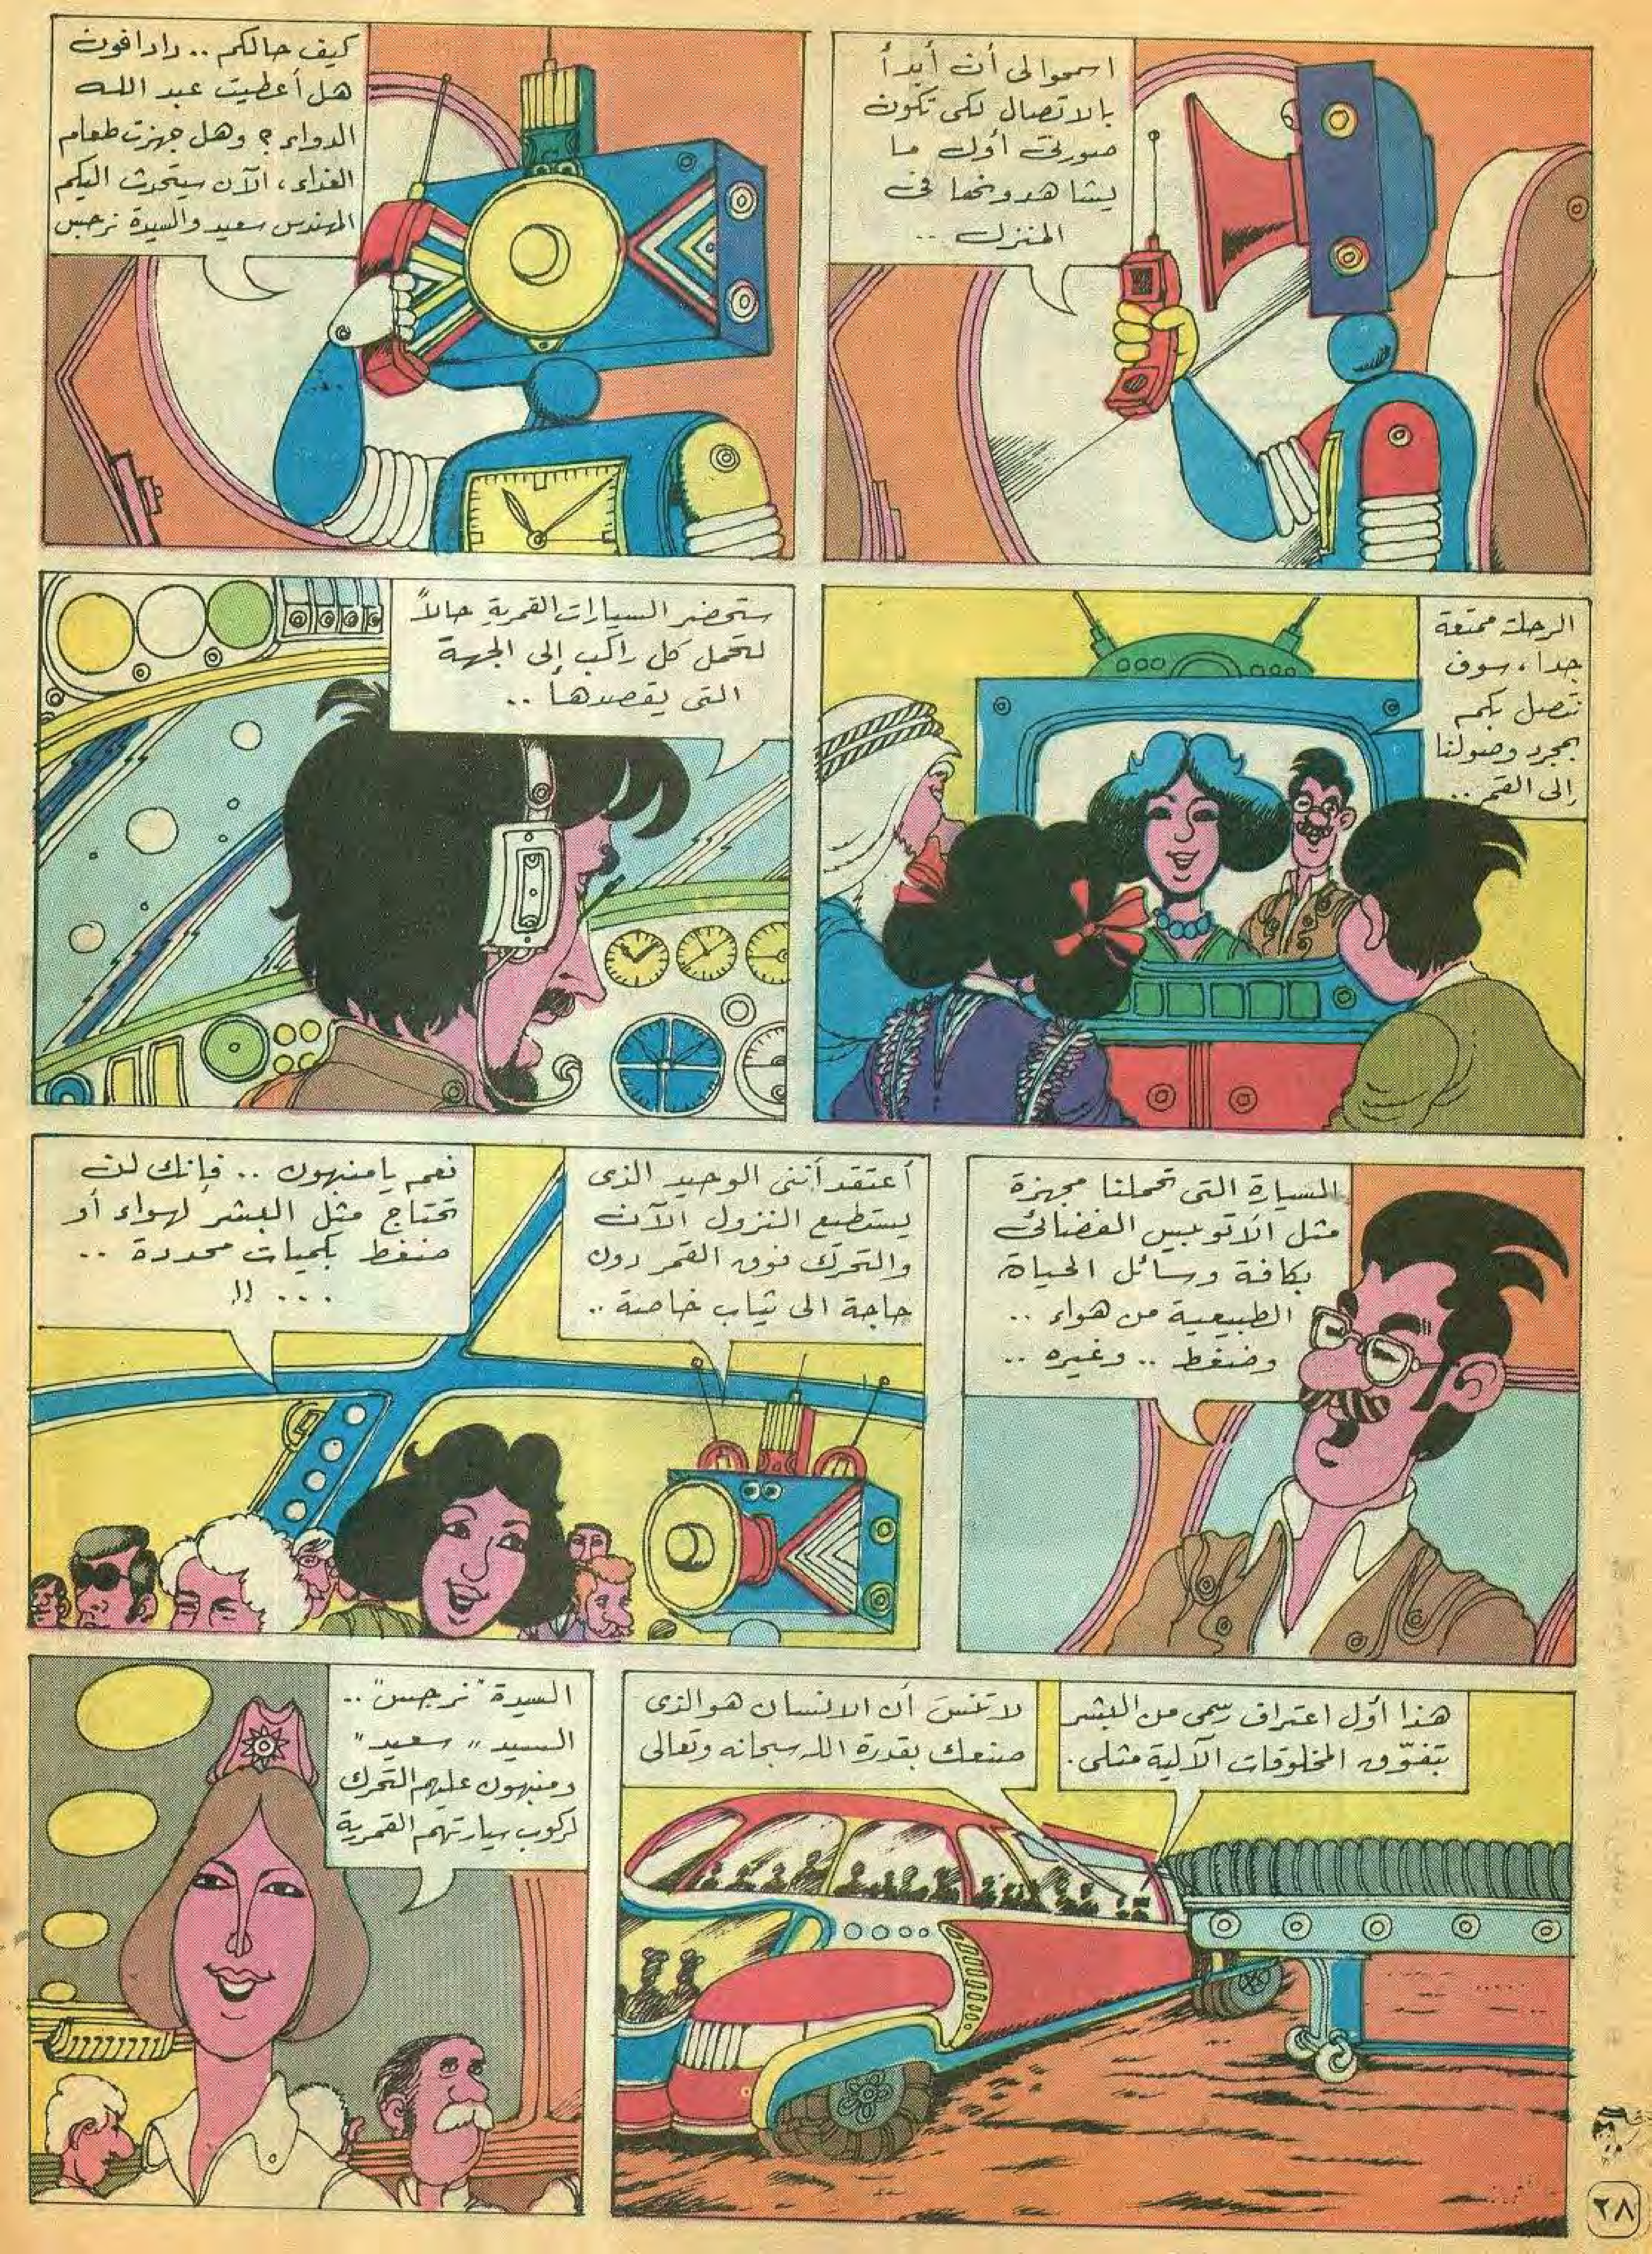 اسمحوا لى أن أبدأ
بالاتصال لكى تكون
صورتى أول ما
يشاهدونها فى
المنزل ..
كيف حالكم .. رادافون
هل أعطيت عبد الله
الدواء ؟ وهل جهزت طعام
الغداء ، الآن سيتحدث اليكم
المهندس سعيد والسيدة نرجس
الرحلة ممتعة
جدا ، سوف
نتصل بكم
بمجرد وصولنا
إلى القمر ..
ستحضر السيارات القمرية حالاً
لتحمل كل راكب إلى الجهة
التى يقصدها ..
السيارة التى تحملنا مجهزة
مثل الأتوبيس الفضائى
بكافة وسائل الحياة
الطبيعية من هواء ..
وضغط .. وغيره ..
أعتقد أننى الوحيد الذى
يستطيع النزول الآن
والتحرك فوق القمر دون
حاجة الى ثياب خاصة ..
نعم يا منبهون .. فإنك لن
تحتاج مثل البشر لهواء أو
ضغط بكميات محددة ..
... !!
هذا أول اعتراف رسمى من البشر
بتفوّق المخلوقات الآلية مثلى .
لا تنسَ أن الانسان هو الذى
صنعك بقدرة الله سبحانه وتعالى
السيدة "نرجس" ..
السيد "سعيد"
ومنبهون عليهم التحرك
لركوب سيارتهم القمرية
٢٨